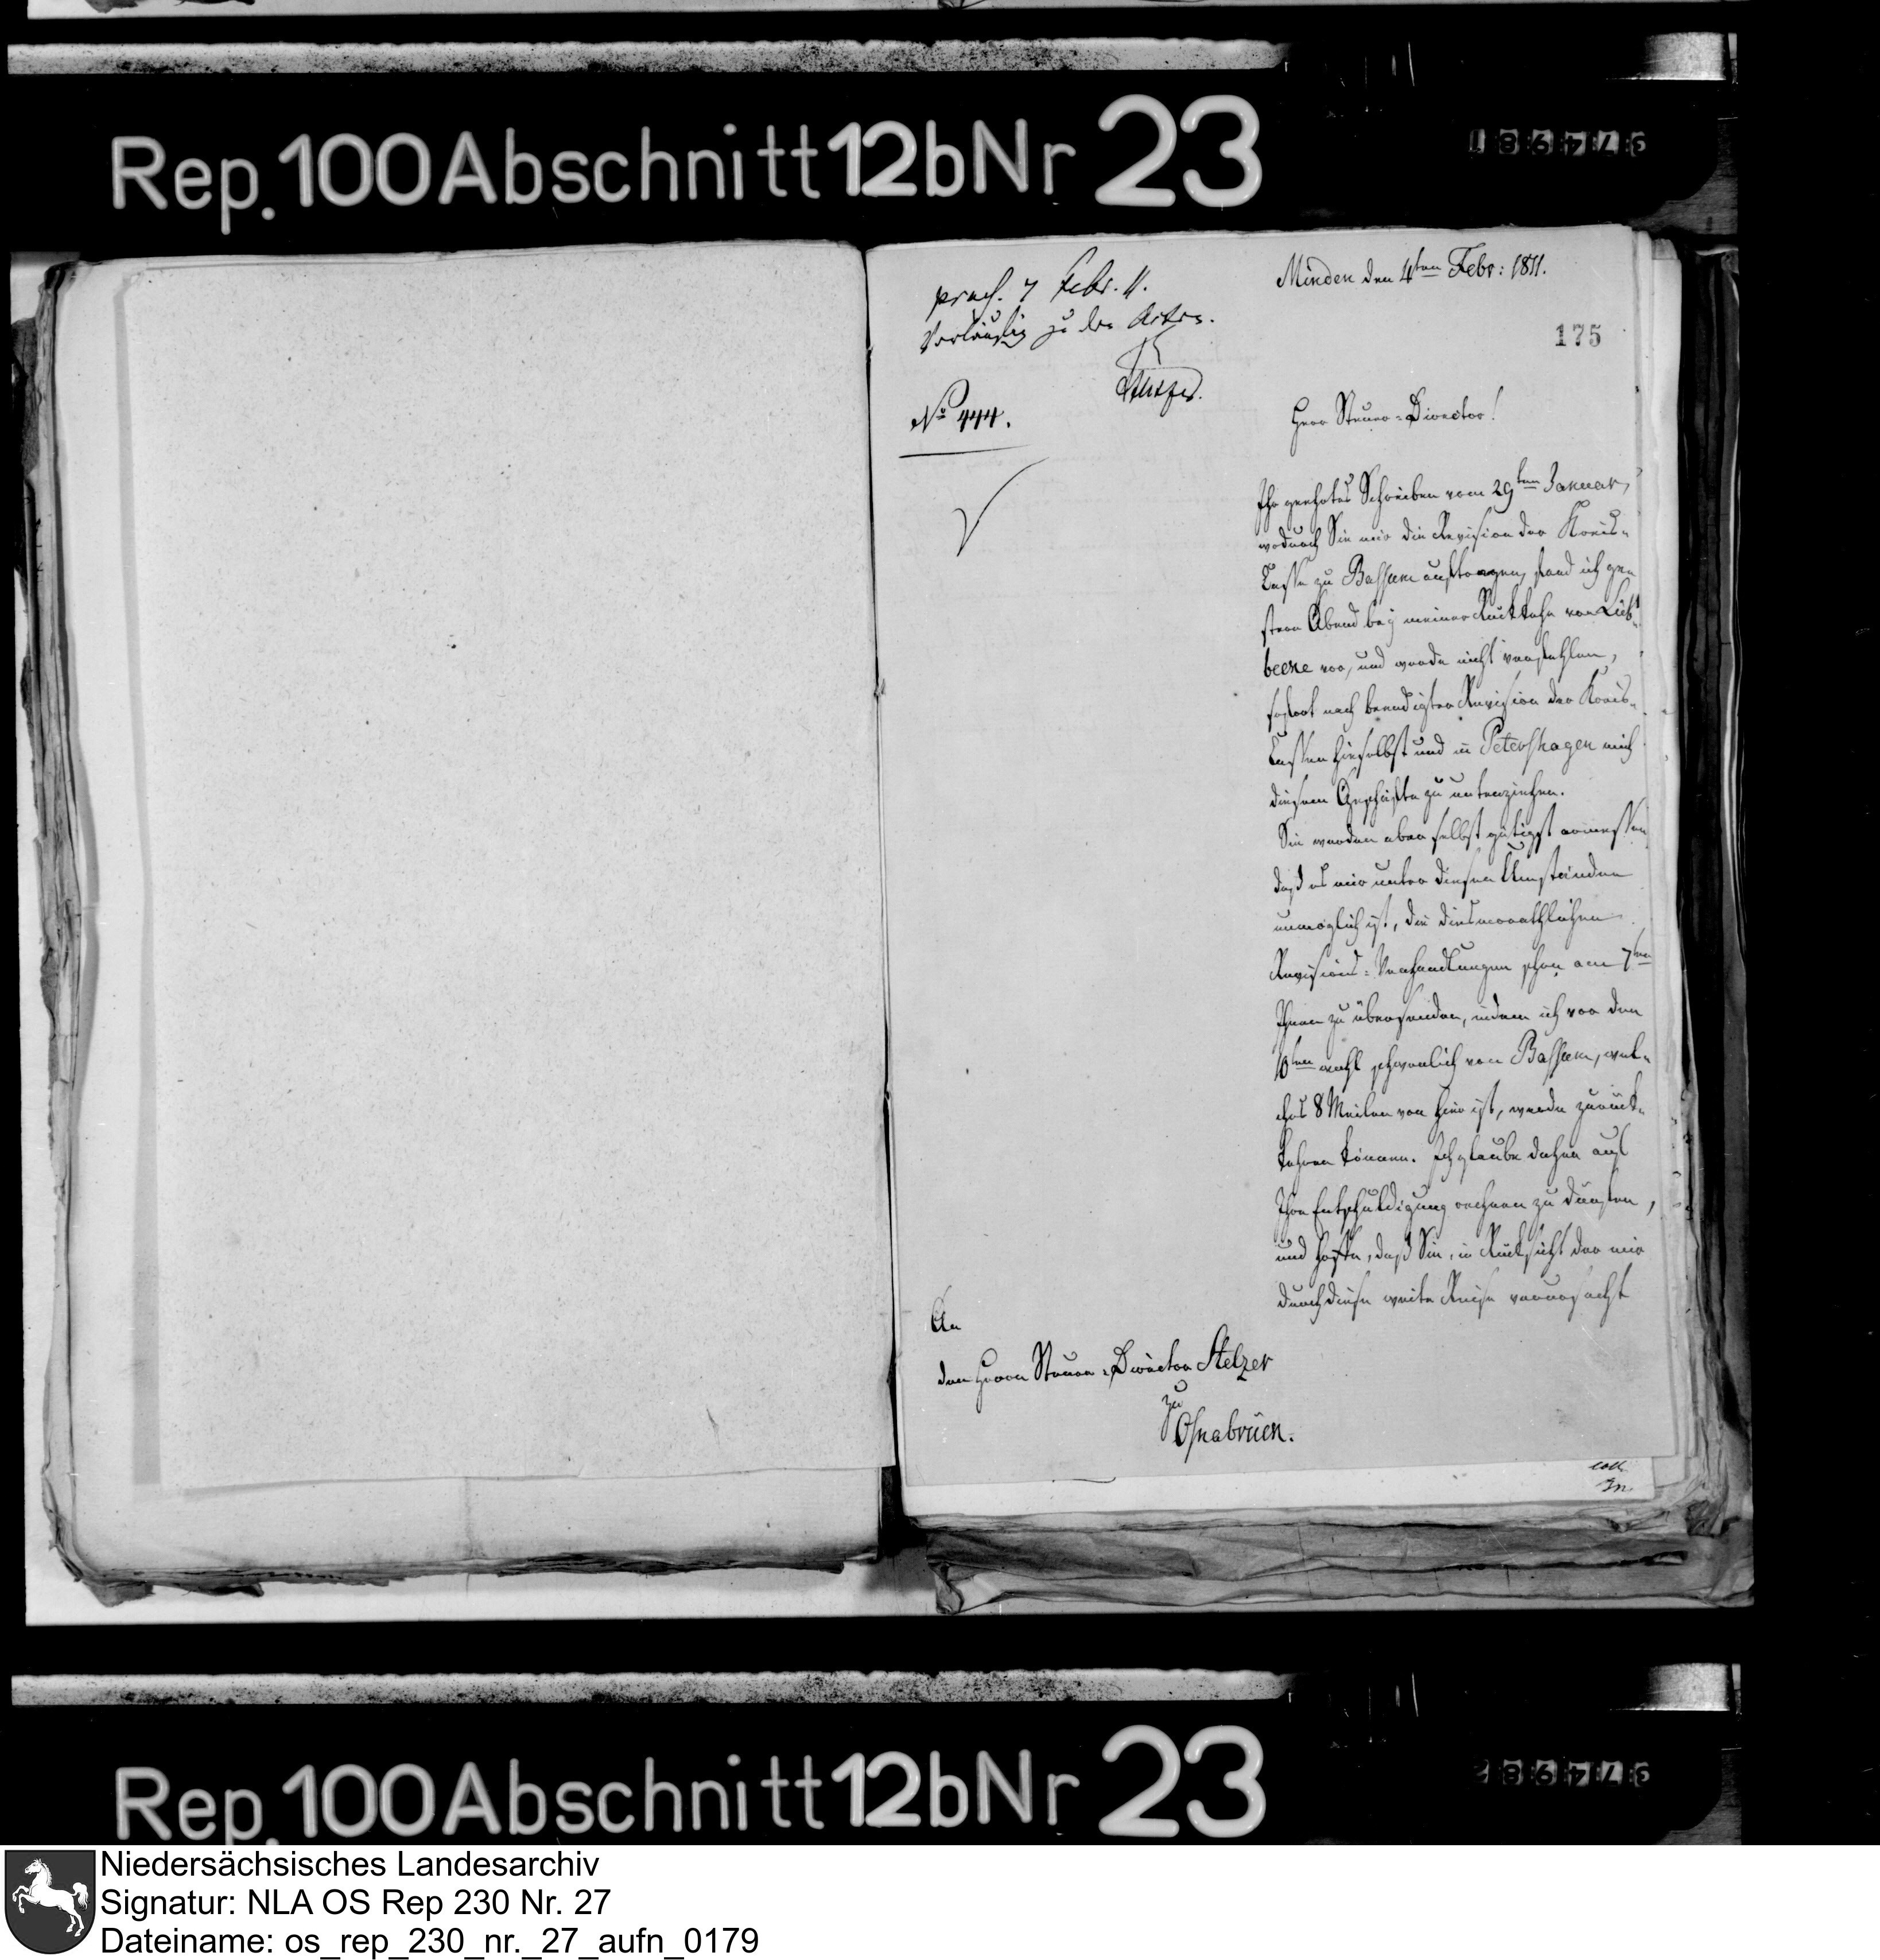 Rep. 100 Abschnitt 12b Nr 23
praes. 7 Febr. 11.
Vorläufig zu den Acten.
Stelzer.
No 444.
Minden den 4ten Febr: 1811.
175
Herr Steuer-Director!
Ihr geehrtes Schreiben vom 29ten Januar,
wodurch Sie mir die Revision der Kreis-
Casse zu Bassum auftragen, fand ich ge-
stern Abend bey meiner Rückkehr von Lüb-
beke vor, und werde nicht verfehlen,
sofort nach beendigter Revision der Kreis-
Cassen hieselbst und in Petershagen mich
diesem Geschäfte zu unterziehen.
Sie werden aber selbst gütigst ermessen
daß es mir unter diesen Umständen
unmöglich ist, die diesmonathlichen
Revisions-Verhandlungen schon am 7ten
Ihnen zu übersenden, indem ich vor dem
10ten wohl schwerlich von Bassum, wel-
ches 8 Meilen von hier ist, werde zurück-
kehren können. Ich glaube daher auf
Ihre Entschuldigung rechnen zu dürfen,
und hoffe, daß Sie, in Rücksicht der mir
durch diese weite Reise verursacht
An
den Herrn Steuer-Director Stelzer
zu
Osnabrück.
Rep. 100 Abschnitt 12b Nr 23
Niedersächsisches Landesarchiv
Signatur: NLA OS Rep 230 Nr. 27
Dateiname: os_rep_230_nr._27_aufn_0179